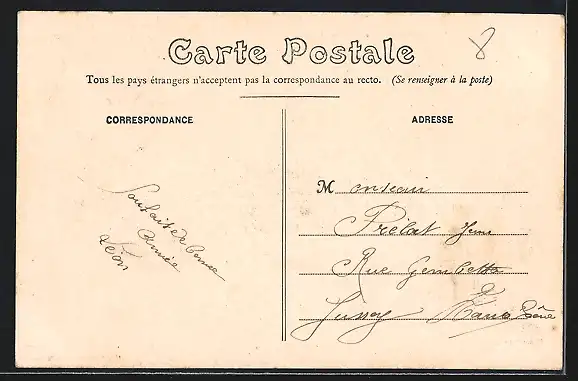 8
Carte Postale
Tous les pays étrangers n'acceptent pas la correspondance au recto. (Se renseigner à la poste)
CORRESPONDANCE
Souhait de bonne
année
Léon
ADRESSE
Monsieur
Prélat
Rue Gambetta
Jussey Haute Saône